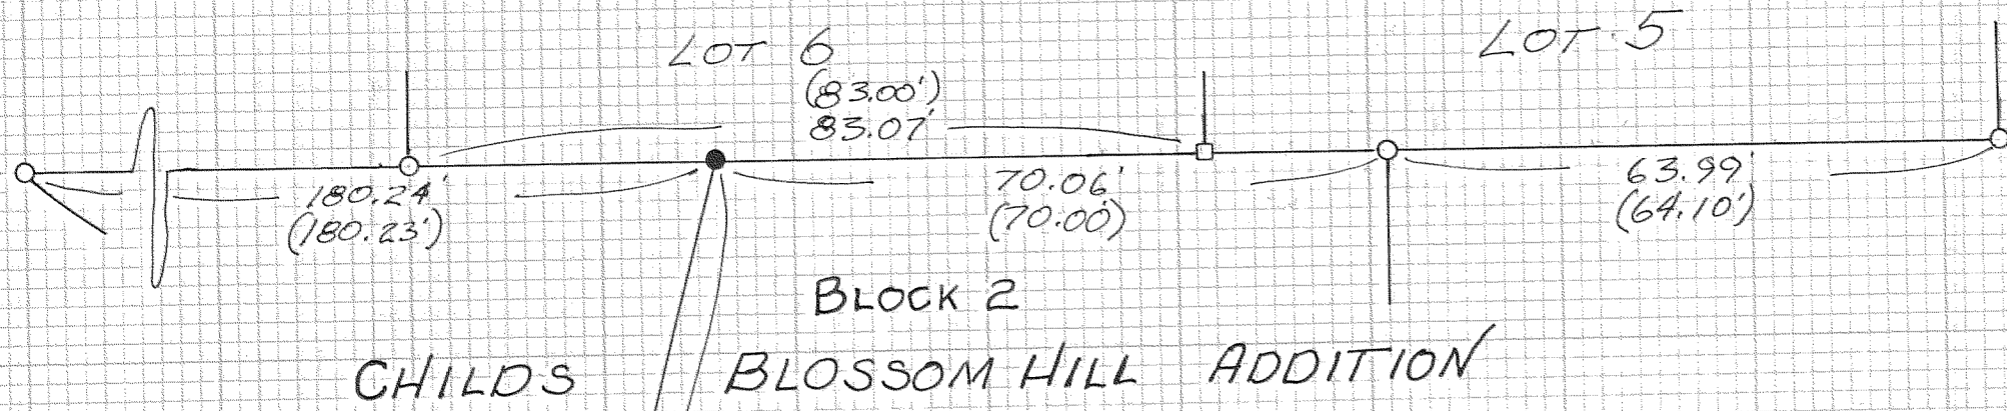 LOT 6
(83.00')
83.07'
LOT 5
180.24'
(180.23')
70.06'
(70.00')
63.99'
(64.10')
BLOCK 2
CHILDS BLOSSOM HILL ADDITION